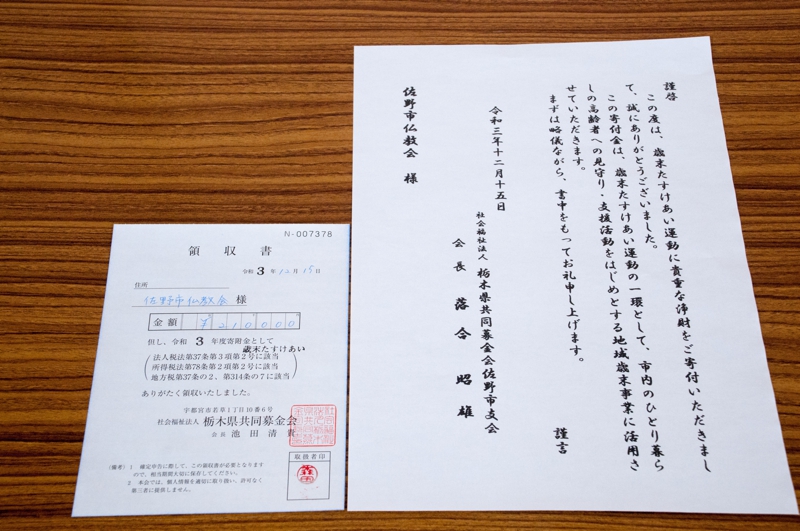 N-007378
領収書
令和 3 年 12 月 15 日
住所
佐野市仏教会 様
金額 ¥210000
但し、令和 3 年度寄附金として
歳末たすけあい
法人税法第37条第3項第2号に該当
所得税法第78条第2項第2号に該当
地方税第37条の2、第314条の7に該当
ありがたく領収いたしました。
宇都宮市若草1丁目10番6号
社会福祉法人 栃木県共同募金会
会長 池田清貴
取扱者印
(備考) 1 確定申告に際して、この領収書が必要となりますので、相当期間大切に保存してください。
2 本会では、個人情報を適切に取り扱い、許可なく第三者に提供しません。
謹啓
この度は、歳末たすけあい運動に貴重な浄財をご寄付いただきまし
て、誠にありがとうございました。
この寄付金は、歳末たすけあい運動の一環として、市内のひとり暮ら
しの高齢者への見守り・支援活動をはじめとする地域歳末事業に活用さ
せていただきます。
まずは略儀ながら、書中をもってお礼申し上げます。
謹言
令和三年十二月十五日
社会福祉法人 栃木県共同募金会佐野市支会
会長 落合昭雄
佐野市仏教会 様